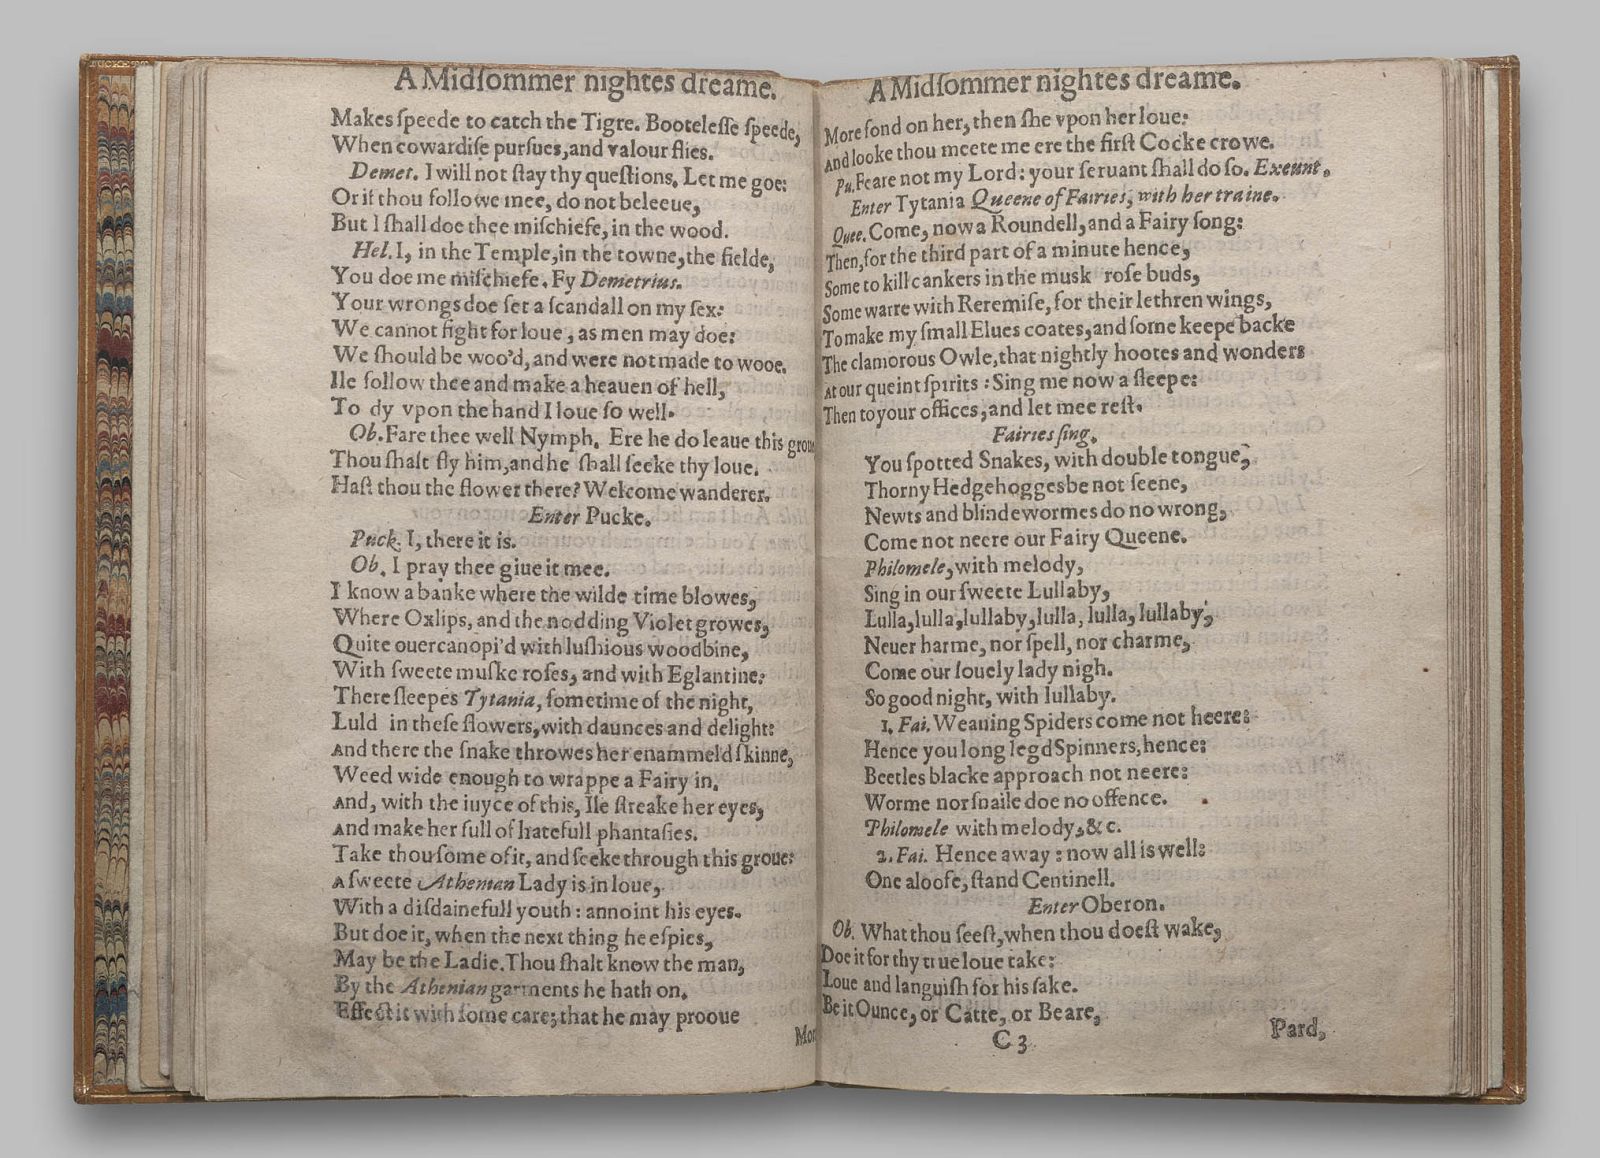 A Midſommer nightes dreame.
Makes ſpeede to catch the Tigre. Booteleſſe ſpeede,
When cowardiſe purſues, and valour flies.
Demet. I will not ſtay thy queſtions. Let me goe:
Or if thou followe mee, do not beleeue,
But I ſhall doe thee miſchiefe, in the wood.
Hel. I, in the Temple, in the towne, the fielde,
You doe me miſchiefe. Fy Demetrius.
Your wrongs doe ſet a ſcandall on my ſex:
We cannot fight for loue, as men may doe:
We ſhould be woo'd, and were not made to wooe.
Ile follow thee and make a heauen of hell,
To dy vpon the hand I loue ſo well.
Ob. Fare thee well Nymph. Ere he do leaue this groue
Thou ſhalt fly him, and he ſhall ſeeke thy loue.
Haſt thou the flower there? Welcome wanderer.
Enter Pucke.
Puck. I, there it is.
Ob. I pray thee giue it mee.
I know a banke where the wilde time blowes,
Where Oxlips, and the nodding Violet growes,
Quite ouercanopi'd with luſhious woodbine,
With ſweete muſke roſes, and with Eglantine:
There ſleepes Tytania, ſometime of the night,
Luld in theſe flowers, with daunces and delight:
And there the ſnake throwes her enammeld ſkinne,
Weed wide enough to wrappe a Fairy in.
And, with the iuyce of this, Ile ſtreake her eyes,
And make her full of hatefull phantaſies.
Take thou ſome of it, and ſeeke through this groue:
A ſweete Athenian Lady is in loue,
With a diſdainefull youth: annoint his eyes.
But doe it, when the next thing he eſpies,
May be the Ladie. Thou ſhalt know the man,
By the Athenian garments he hath on.
Effect it with ſome care; that he may prooue
Mor
A Midſommer nightes dreame.
More fond on her, then ſhe vpon her loue:
And looke thou meete me ere the firſt Cocke crowe.
Pu. Feare not my Lord: your ſeruant ſhall do ſo. Exeunt.
Enter Tytania Queene of Fairies, with her traine.
Quee. Come, now a Roundell, and a Fairy ſong:
Then, for the third part of a minute hence,
Some to kill cankers in the musk roſe buds,
Some warre with Reremiſe, for their lethren wings,
To make my ſmall Elues coates, and ſome keepe backe
The clamorous Owle, that nightly hootes and wonders
At our queint ſpirits: Sing me now a ſleepe:
Then to your offices, and let mee reſt.
Fairies ſing.
You ſpotted Snakes, with double tongue,
Thorny Hedgehogges be not ſeene,
Newts and blindewormes do no wrong,
Come not neere our Fairy Queene.
Philomele, with melody,
Sing in our ſweete Lullaby,
Lulla, lulla, lullaby, lulla, lulla, lullaby,
Neuer harme, nor ſpell, nor charme,
Come our louely lady nigh.
So good night, with lullaby.
1. Fai. Weauing Spiders come not heere:
Hence you long legd Spinners, hence:
Beetles blacke approach not neere:
Worme nor ſnaile doe no offence.
Philomele with melody, &c.
2. Fai. Hence away: now all is well:
One aloofe, ſtand Centinell.
Enter Oberon.
Ob. What thou ſeeſt, when thou doeſt wake,
Doe it for thy true loue take:
Loue and languiſh for his ſake.
Be it Ounce, or Catte, or Beare,
C 3
Pard,